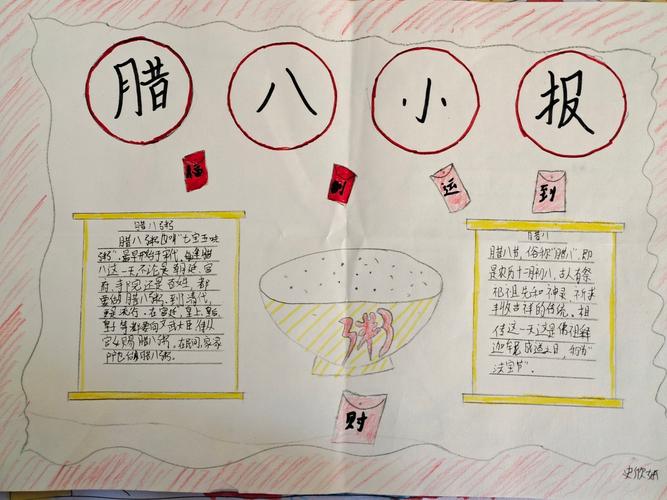 腊八小报
福 到 运 到
腊八粥
腊八粥,又叫"七宝五味
粥"。最早开始于宋代,每逢腊
八这一天,不论是朝廷、官
府、寺院还是百姓,都
要做腊八粥。到清代,
在宫廷,皇上、皇后、
皇子等都要向文武大臣、侍从
宫女赐腊八粥。在民间,家家
户也做腊八粥。
粥
财
腊八
腊八节,俗称"腊八",即
是农历十二月初八,古人有祭
祀祖先和神灵、祈求
丰收吉祥的传统。相
传这一天这是佛祖释
迦牟尼成道之日,称为"
法宝节"。
史欣